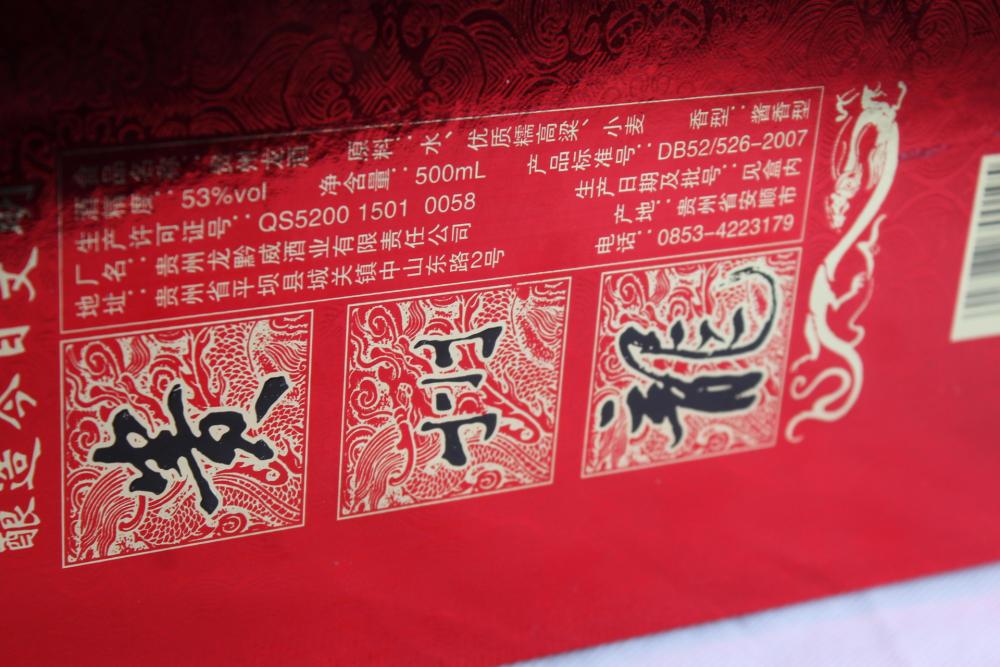 食品名称：贵州龙酒
原料：水、优质糯高粱、小麦
香型：酱香型
酒精度：53%vol
净含量：500mL
产品标准号：DB52/526-2007
生产许可证号：QS5200 1501 0058
生产日期及批号：见盒内
厂名：贵州龙黔威酒业有限责任公司
产地：贵州省安顺市
地址：贵州省平坝县城关镇中山东路2号
电话：0853-4223179
贵州龍
酿造今日文